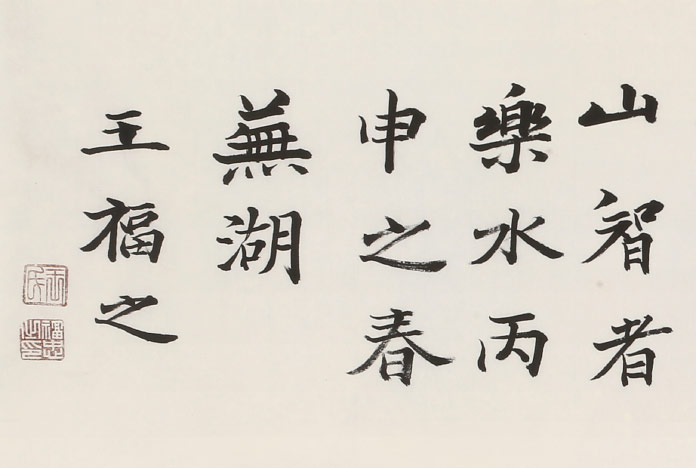 山智者
樂水丙
申之春
蕪湖
王福之